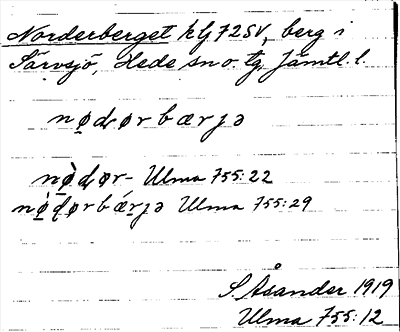 Norderberget klf 72SV, berg i
Särvsjö, Hede sn o. tg Jämtl. l.
nødørbærjə
nø̀dør- Ulma 755:22
nø̀dørbǽrjə Ulma 755:29
S Åsander 1919
Ulma 755:12